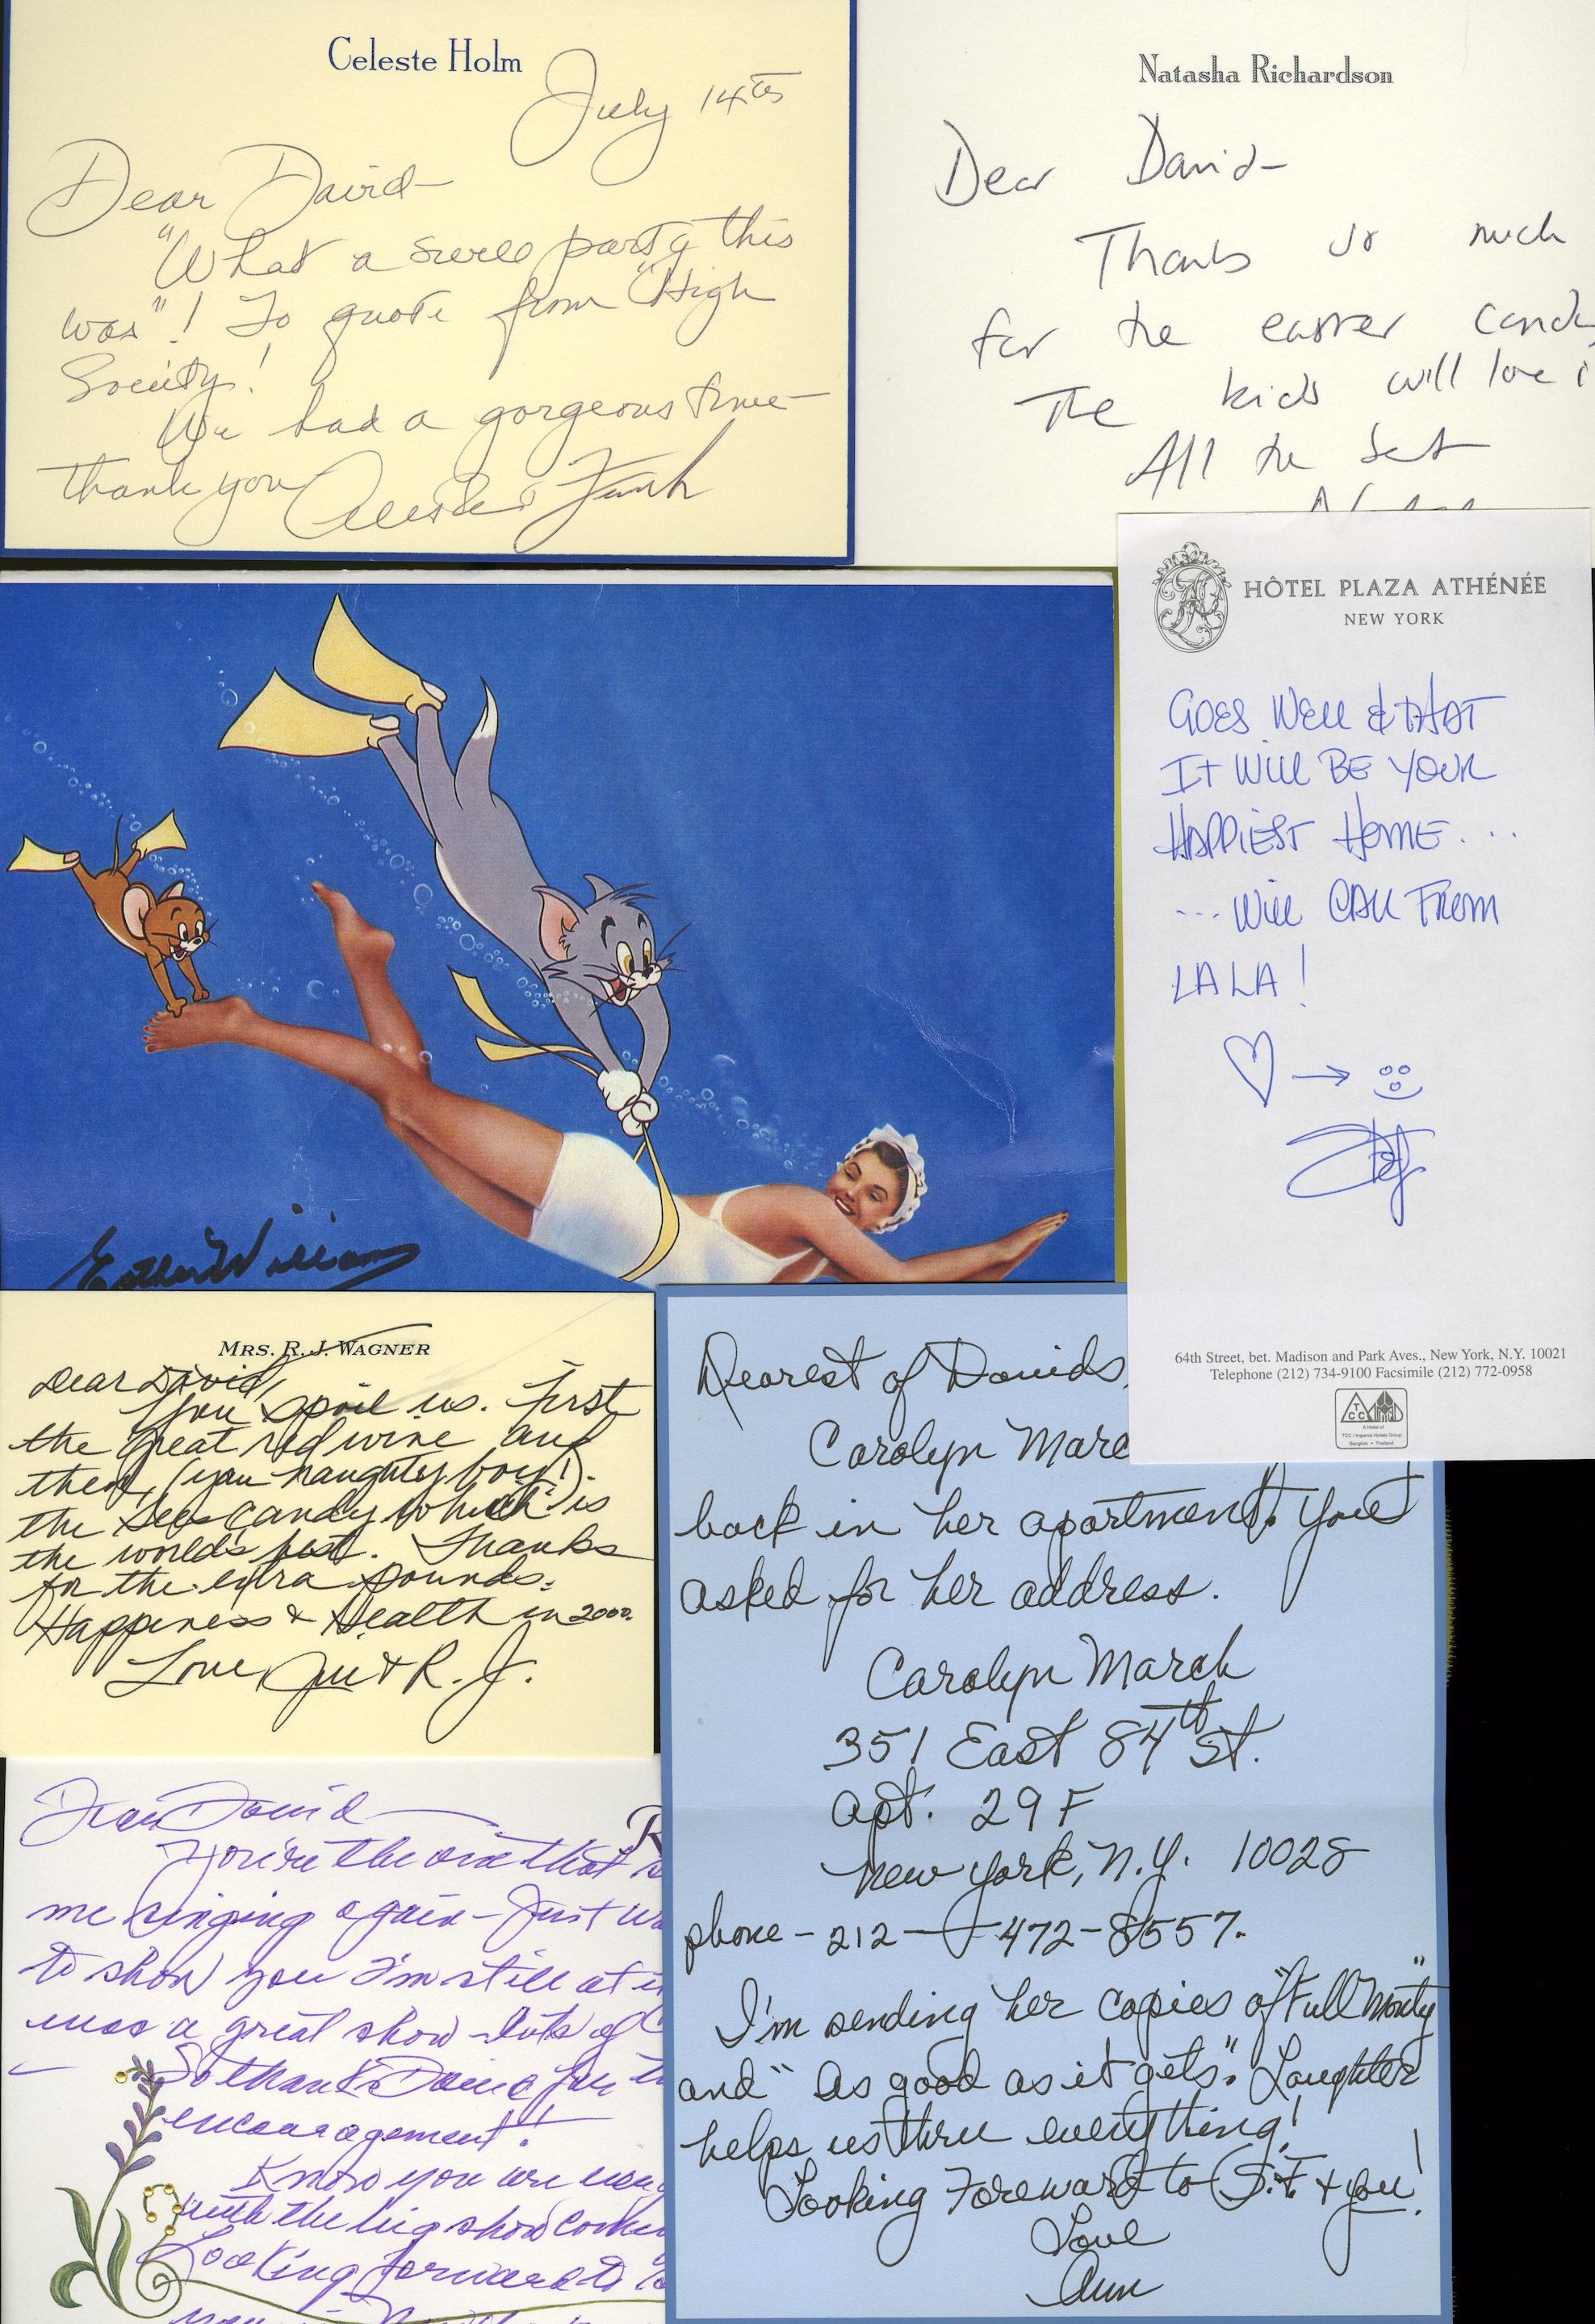 Celeste Holm
July 14th
Dear David—
"What a swell party this
was"! To quote from "High
Society!
We had a gorgeous time—
thank you Celeste & Frank
Natasha Richardson
Dear David-
Thanks so much
for the easter
The kids will love
All the best
HÔTEL PLAZA ATHÉNÉE
NEW YORK
GOES WELL & THAT
IT WILL BE YOUR
HAPPIEST HOME...
...WILL CALL FROM
LALA!
64th Street, bet. Madison and Park Aves., New York, N.Y. 10021
Telephone (212) 734-9100 Facsimile (212) 772-0958
TCC
A Hotel of
TCC / Imperial Hotels Group
Bangkok • Thailand
Esther Williams
MRS. R. J. WAGNER
Dear David,
You spoil us. First
the great red wine and
then, (you naughty boy!).
the Sees candy which is
the world's best. Thanks
for the extra pounds.
Happiness & Health in 2000.
Love, Jill & R. J.
Dearest of Davids,
Carolyn Marc
back in her apartment. You
asked for her address.
Carolyn March
351 East 84th St.
apt. 29F
New York, N.Y. 10028
phone - 212 — 472-8557.
I'm sending her copies of "Full Monty"
and "As good as it gets". Laughter
helps us thru everything!
Looking Foreward to S.F. & you!
Love
Ann
Dear David—
You're the one that
me singing again - Just
to show you I'm still at
was a great show - lots of
So thanks David for
encouragement!
Know you are
with the big show
Looking forward to